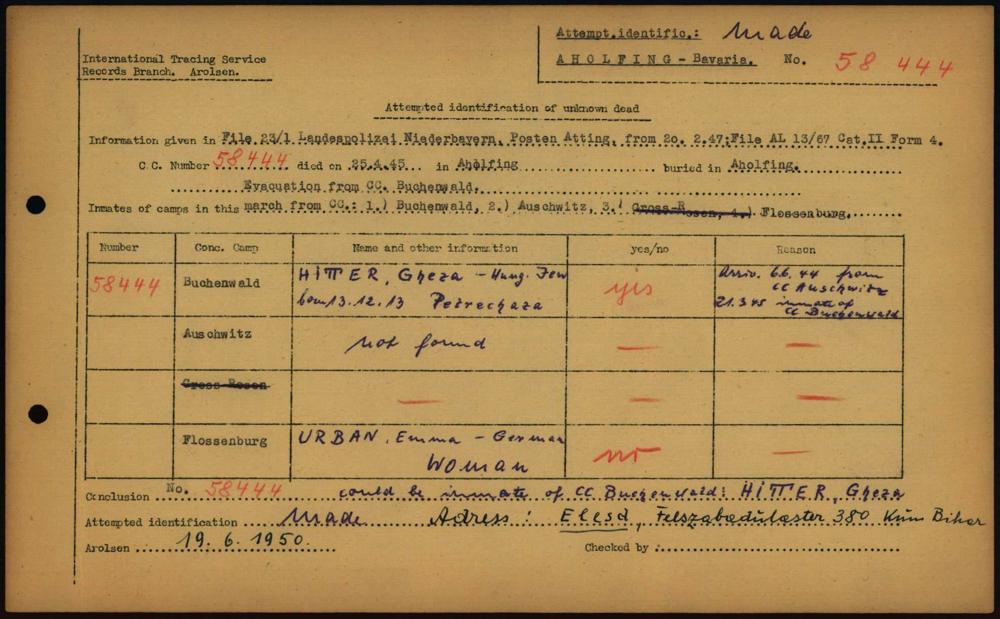 Attempt.identific.: Made
International Tracing Service
Records Branch. Arolsen.
AHOLFING - Bavaria. No. 58 444
Attempted identification of unknown dead
Information given in File 23/1 Landespolizei Niederbayern, Posten Atting, from 20. 2.47; File AL 13/67 Cat.II Form 4.
C.C. Number 58444 died on 25.4.45. in Aholfing buried in Aholfing.
Evacuation from CC. Buchenwald.
Inmates of camps in this march from CC.: 1.) Buchenwald, 2.) Auschwitz, 3.) Gross-Rosen, 4.) Flossenburg.
Number Conc. Camp Name and other information yes/no Reason
58444 Buchenwald HITTER, Gheza - Hung. Jew yes Arriv. 6.6.44 from
born 13.12.13 CC Auschwitz
21.3.45 inmate of
CC Buchenwald
Auschwitz not found — —
Gross-Rosen — — —
Flossenburg URBAN, Emma - German no —
Woman
Conclusion No. 58444 could be inmate of CC Buchenwald: HITTER, Gheza
Attempted identification Made Adress: Elesd, 380 Kum Bihar
Arolsen 19. 6. 1950. Checked by